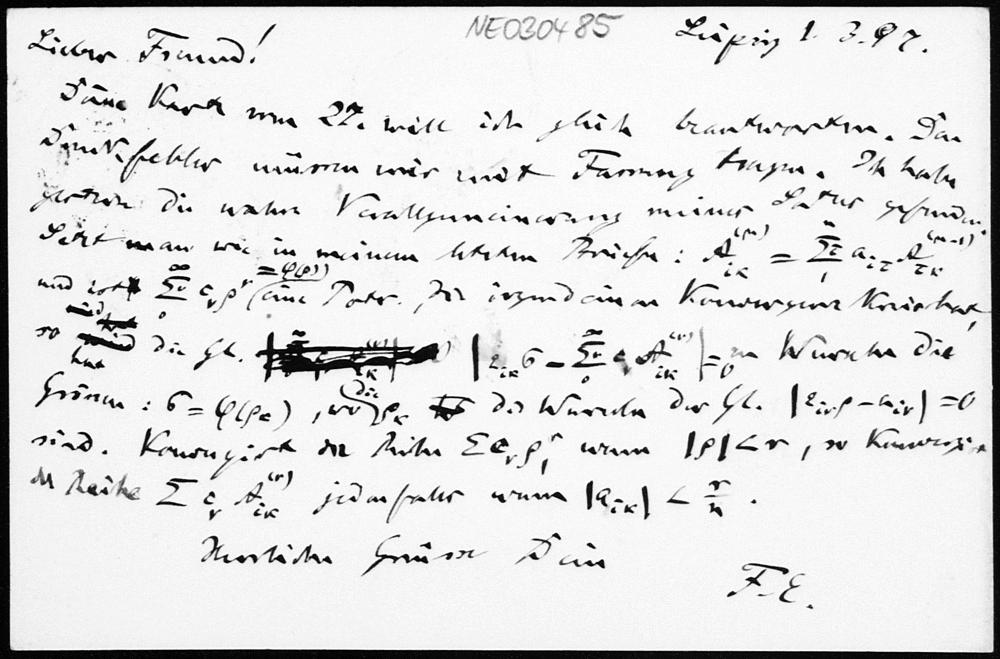 NE030485
Leipzig 1. 3. 97.
Lieber Freund!
Deine Karte vom 27. will ich gleich beantworten. Den
Druckfehler müssen wir mit Fassung tragen. Ich habe
gestern die wahre Verallgemeinerung meines Satzes gefunden.
Setzt man wie in meinem letzten Briefe: A_{iκ}^{(μ)} = Σ_1^n a_{iτ} A_{τκ}^{(μ-1)}
und ist Σ_0^∞ c_ν ρ^ν (=φ(ρ)) eine Potr. die irgend einen Konvergenz Kreis hat,
so hat die Gl. |ε_{iκ} σ − Σ_0^∞ c_ν A_{iκ}^{(ν)}| = 0 zu Wurzeln die
Grössen: σ = φ(ρ_κ), wo die ρ_κ die Wurzeln der Gl. |ε_{iκ}ρ − a_{iκ}| = 0
sind. Konvergirt die Reihe Σ c_ν ρ^ν, wenn |ρ| < r, so Konvergirt
die Reihe Σ c_ν A_{iκ}^{(ν)} jedenfalls wenn |a_{iκ}| < r/n.
Herzliche Grüsse Dein
F. E.